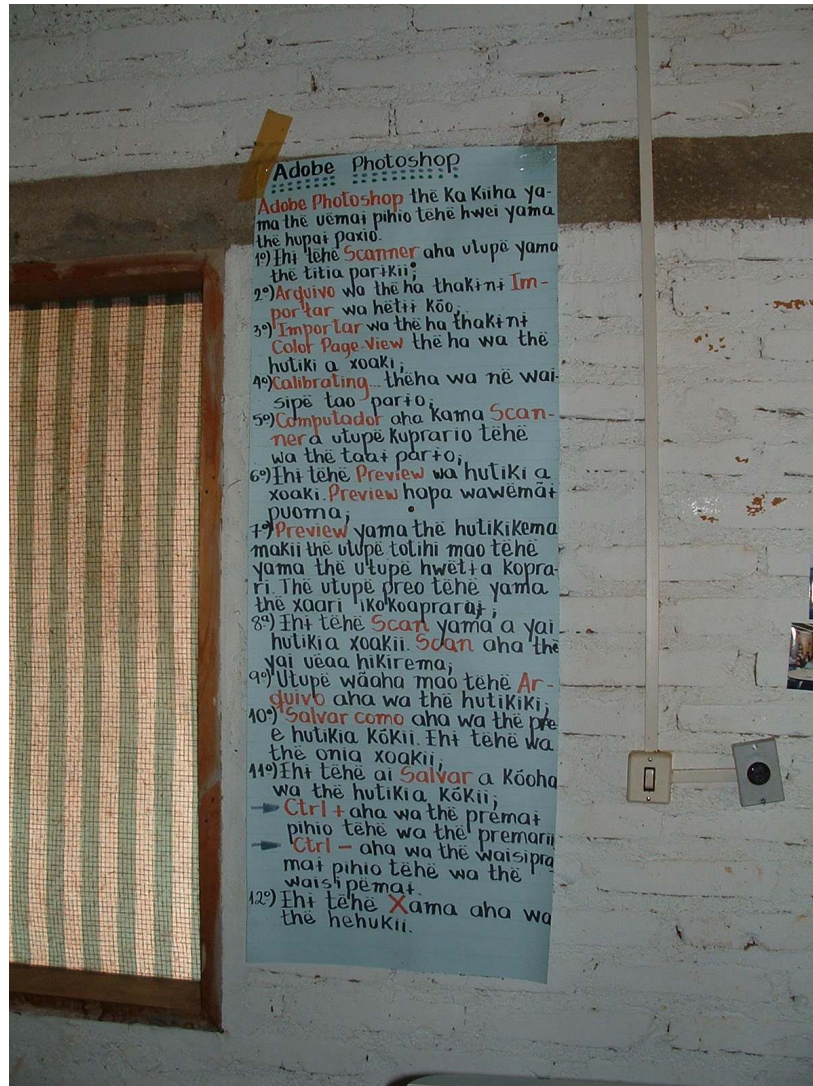 Adobe Photoshop
Adobe Photoshop thë ka kiiha ya-
ma thë uëmaɨ pihio tëhë hwei yama
thë hupaɨ paxio.
1º) Ɨhɨ tëhë Scanner aha utupë yama
thë titia parɨkii;
2º) Arquivo wa thë ha thakɨnɨ Im-
portar wa hëtɨɨ kõo;
3º) Importar wa thë ha thakɨnɨ
Color Page-View thë ha wa thë
hutiki a xoaki;
4º) Calibrating... thëha wa në wai-
sipë tao parɨo;
5º) Computador aha kama Scan-
nera utupë kuprario tëhë
wa thë taaɨ parɨo;
6º) Ɨhɨ tëhë Preview wa hutiki a
xoaki. Preview hopa wawëmãɨ
puoma;
7º) Preview yama thë hutikikema
makii thë utupë totihi mao tëhë
yama thë utupë hwëtɨa kopra-
ri. Thë utupë preo tëhë yama
thë xaari ikokoapraraɨ;
8º) Ɨhɨ tëhë Scan yama a yai
hutikia xoakii. Scan aha thë
yai uëaa hikirema;
9º) Utupë wãaha mao tëhë Ar-
quivo aha wa thë hutikiki;
10º) Salvar como aha wa thë pre
e hutikia kõkii. Ɨhɨ tëhë wa
thë onia xoakii;
11º) Ɨhɨ tëhë ai Salvar a kõoha
wa thë hutikia kõkii;
→ Ctrl + aha wa thë premaɨ
pihio tëhë wa thë premarii
→ Ctrl - aha wa thë waisipra
maɨ pihio tëhë wa thë
waisipëmaɨ.
12º) Ɨhɨ tëhë Xama aha wa
thë hehukii.